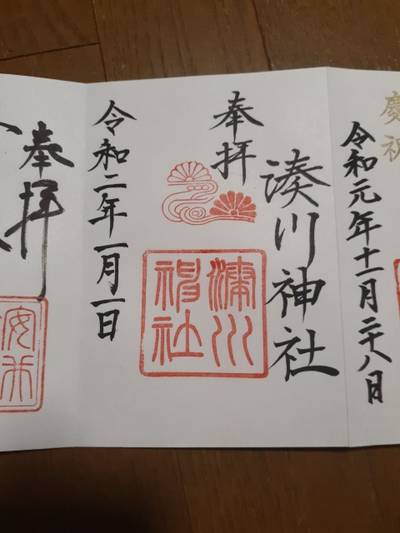 慶祝
令和元年十一月二十八日
奉拝
湊川神社
湊川神社
令和二年一月一日
奉拝